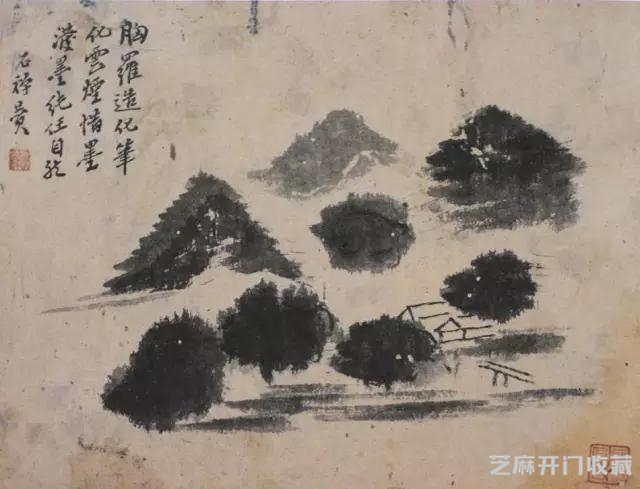 胸羅造化筆
化雲煙惜墨
潑墨純任自然
石禪
芝麻开门收藏